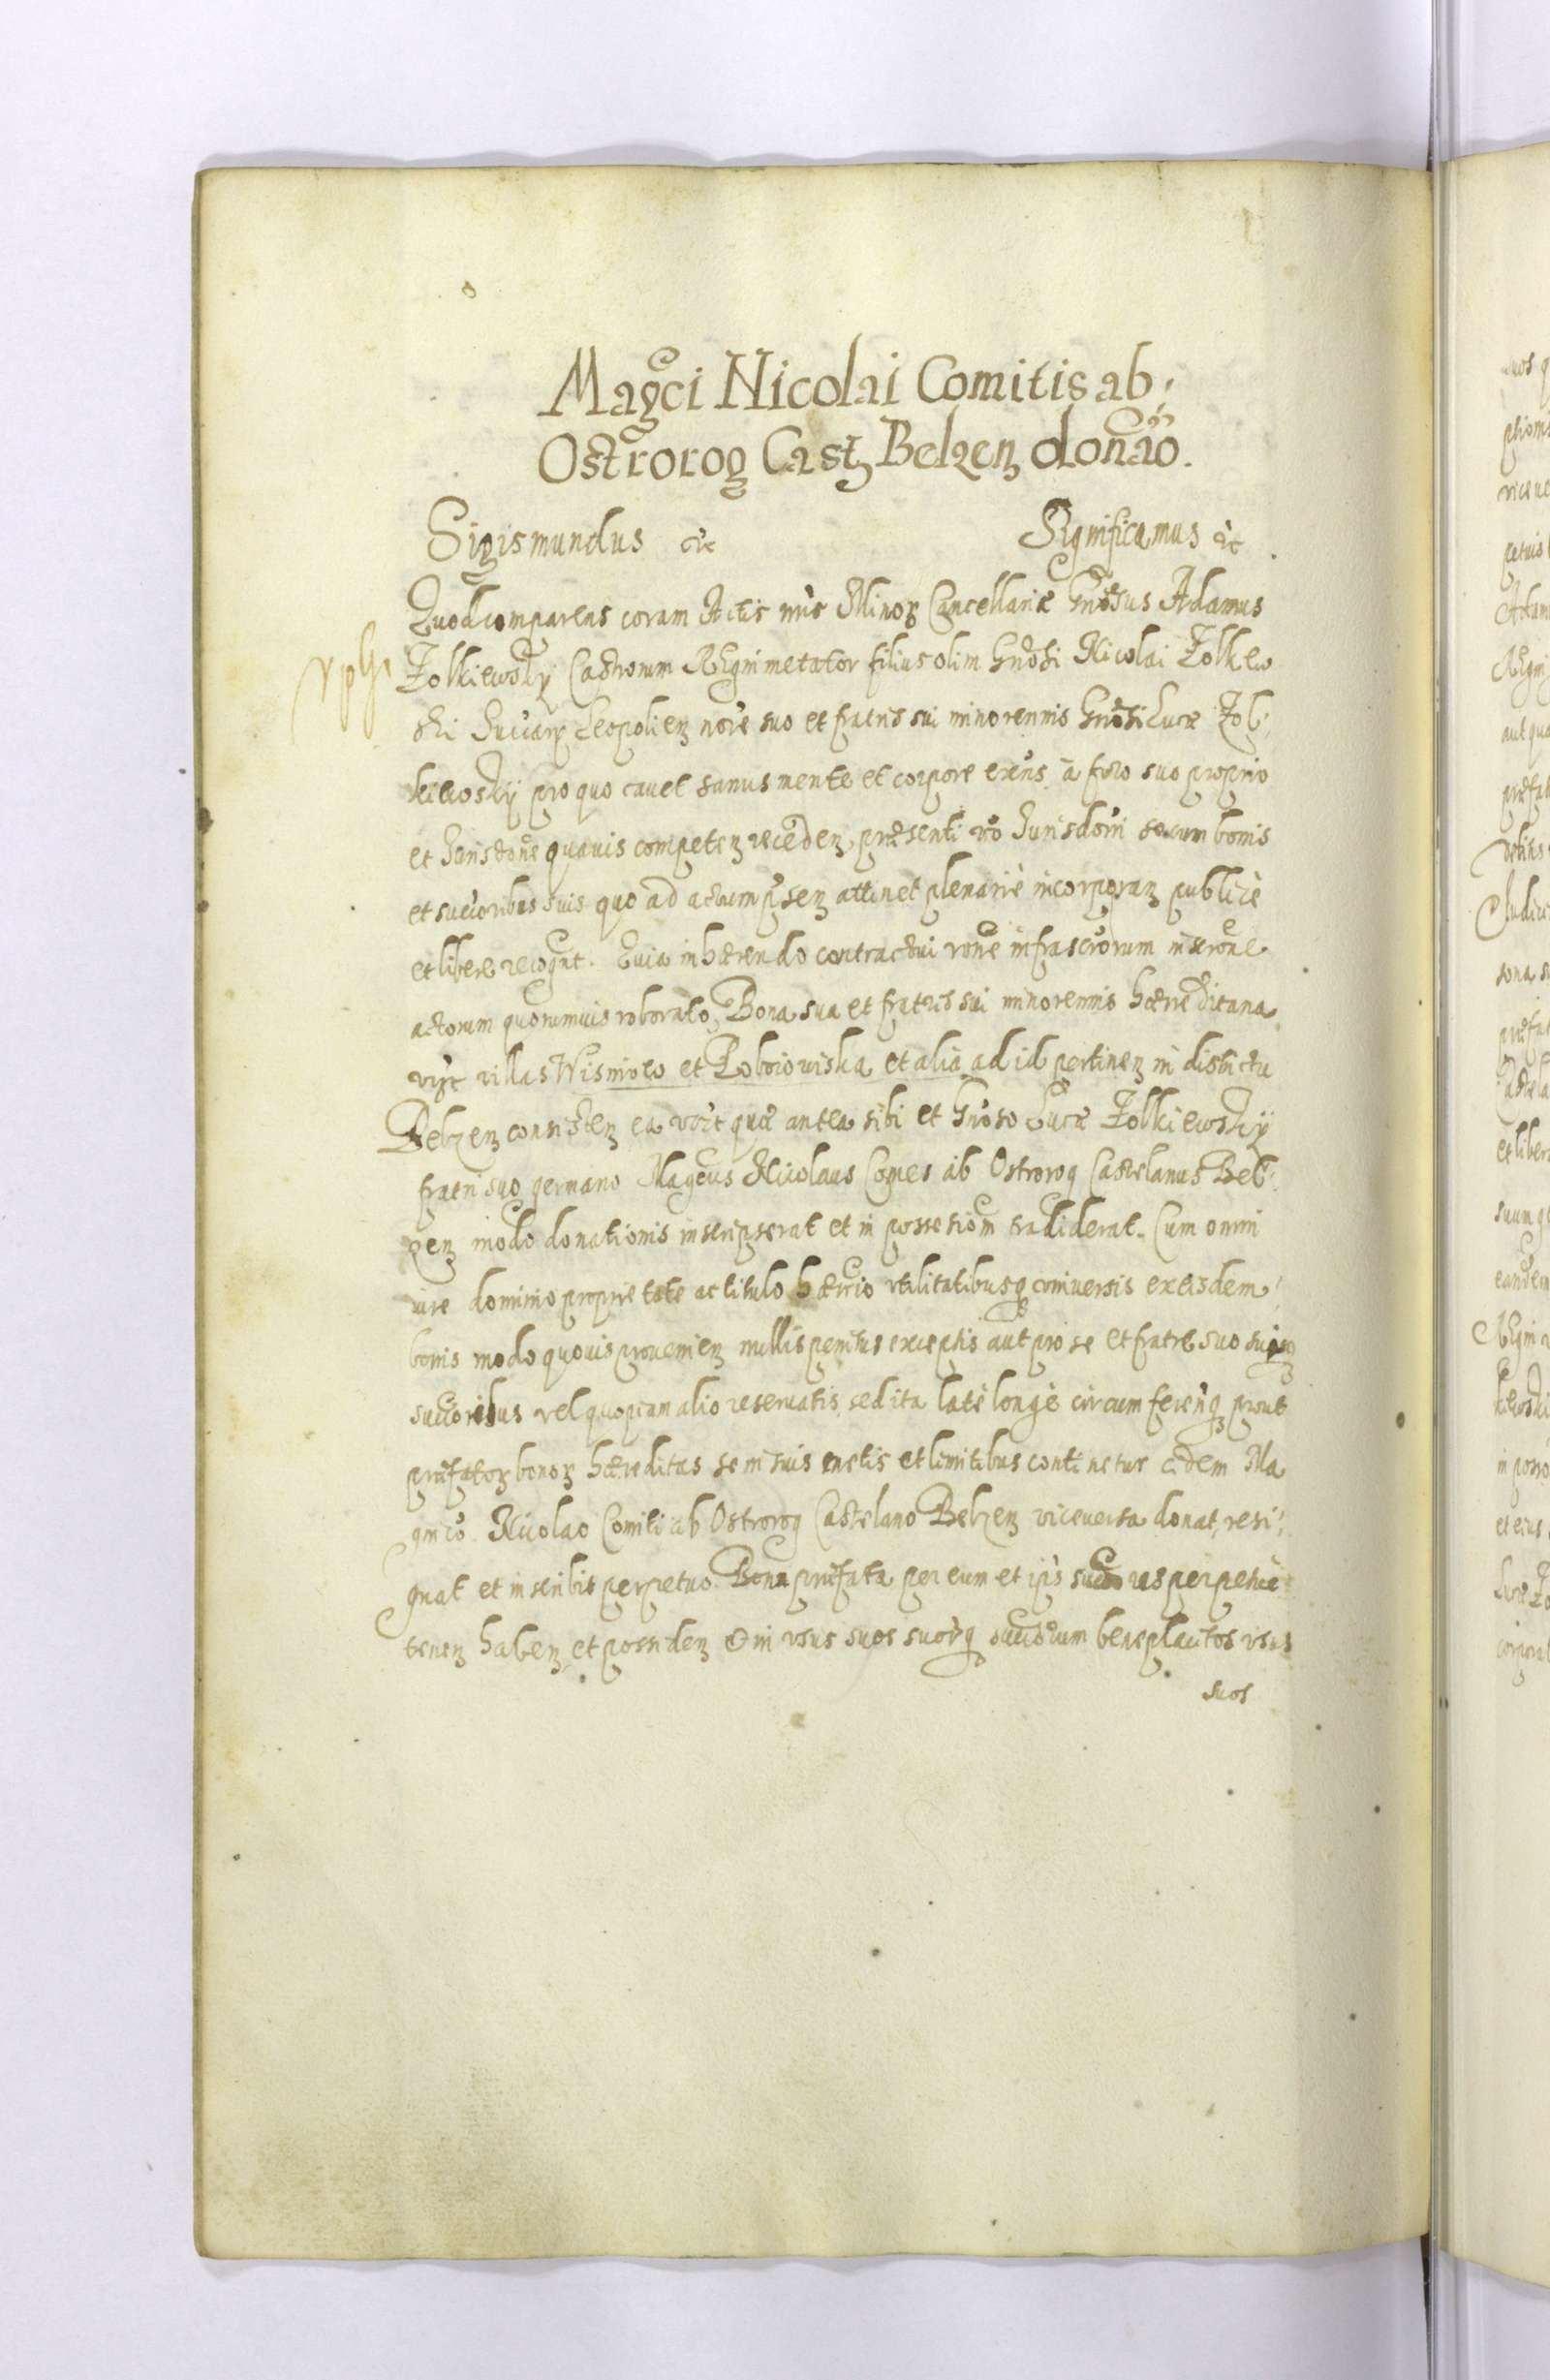 Magci Nicolai Comitis ab
Ostrorog Cast Belzen donao.
Sigismundus etc Significamus etc
Quod comparens coram Actis nris Minor Cancellariæ Gnosus Adamus
Zolkiewsky Castrorum Regni metator filius olim Gnosi Nicolai Zolkiew
ski Leopolien noie suo et fratris sui minorennis Gnosi Lucæ Zol
kiewsky pro quo cauet sanus mente et corpore exns à foro suo proprio
et Jurisdone quauis competen receden, præsenti vo Jurisdoni se cum bonis
et succoribus suis quo ad actum psen attinet plenariè incorporan publicè
et liberè recognt. Quia inhærendo contractui rone infrascrorum inscrone
actorum quorumuis roborato, Bona sua et fratris sui minorennis hæreditaria
vizt villas Wisniow et et alia ad id pertinen in districtu
Belzen consisten ea vizt quæ antea sibi et Gnoso Lucæ Zolkiewsky
fratri suo germano Magcus Nicolaus Comes ab Ostrorog Castelanus Bel
zen modo donationis inscripserat et in possessiom tradiderat. Cum omni
iure dominio proprietate ac titulo hærrio vtilitatibusq conuersis ex eisdem
bonis modo quouis prouenien nullis penitus exceptis aut pro se et fratre suo
succoribus vel quopiam alio reseruatis, sed ita latè longè circumferenq prout
præfator bonor hæreditas se in suis metis et limitibus continetur eidem Ma
gnico Nicolao Comiti ab Ostrorog Castelano Belzen viceuersa donat, resi
gnat et inscribit perpetuo. Bona præfata per eum et ipis succores perpetuè
tenen haben, et possiden & in vsus suos suorq succorum beneplacitos vsus
suos